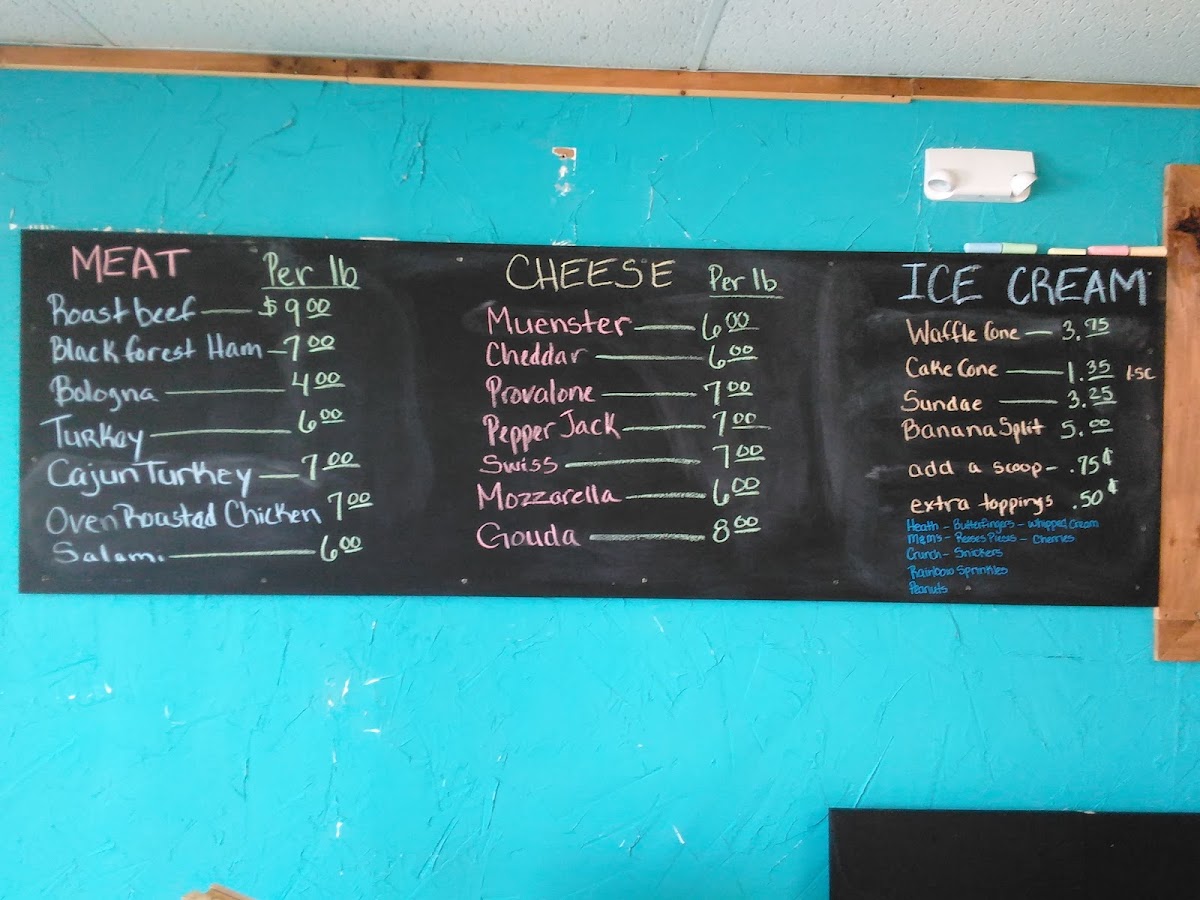 MEAT Per lb
Roast beef $9.00
Black forest Ham 7.00
Bologna 4.00
Turkey 6.00
Cajun Turkey 7.00
Oven Roasted Chicken 7.00
Salami 6.00
CHEESE Per lb
Muenster 6.00
Cheddar 6.00
Provalone 7.00
Pepper Jack 7.00
Swiss 7.00
Mozzarella 6.00
Gouda 8.00
ICE CREAM
Waffle Cone 3.95
Cake Cone 1.35 1-sc
Sundae 3.25
Banana Split 5.00
add a scoop - .75¢
extra toppings .50¢
Heath - Butterfingers - Whipped Cream
M&M's - Reeses Pieces - Cherries
Crunch - Snickers
Rainbow Sprinkles
Peanuts